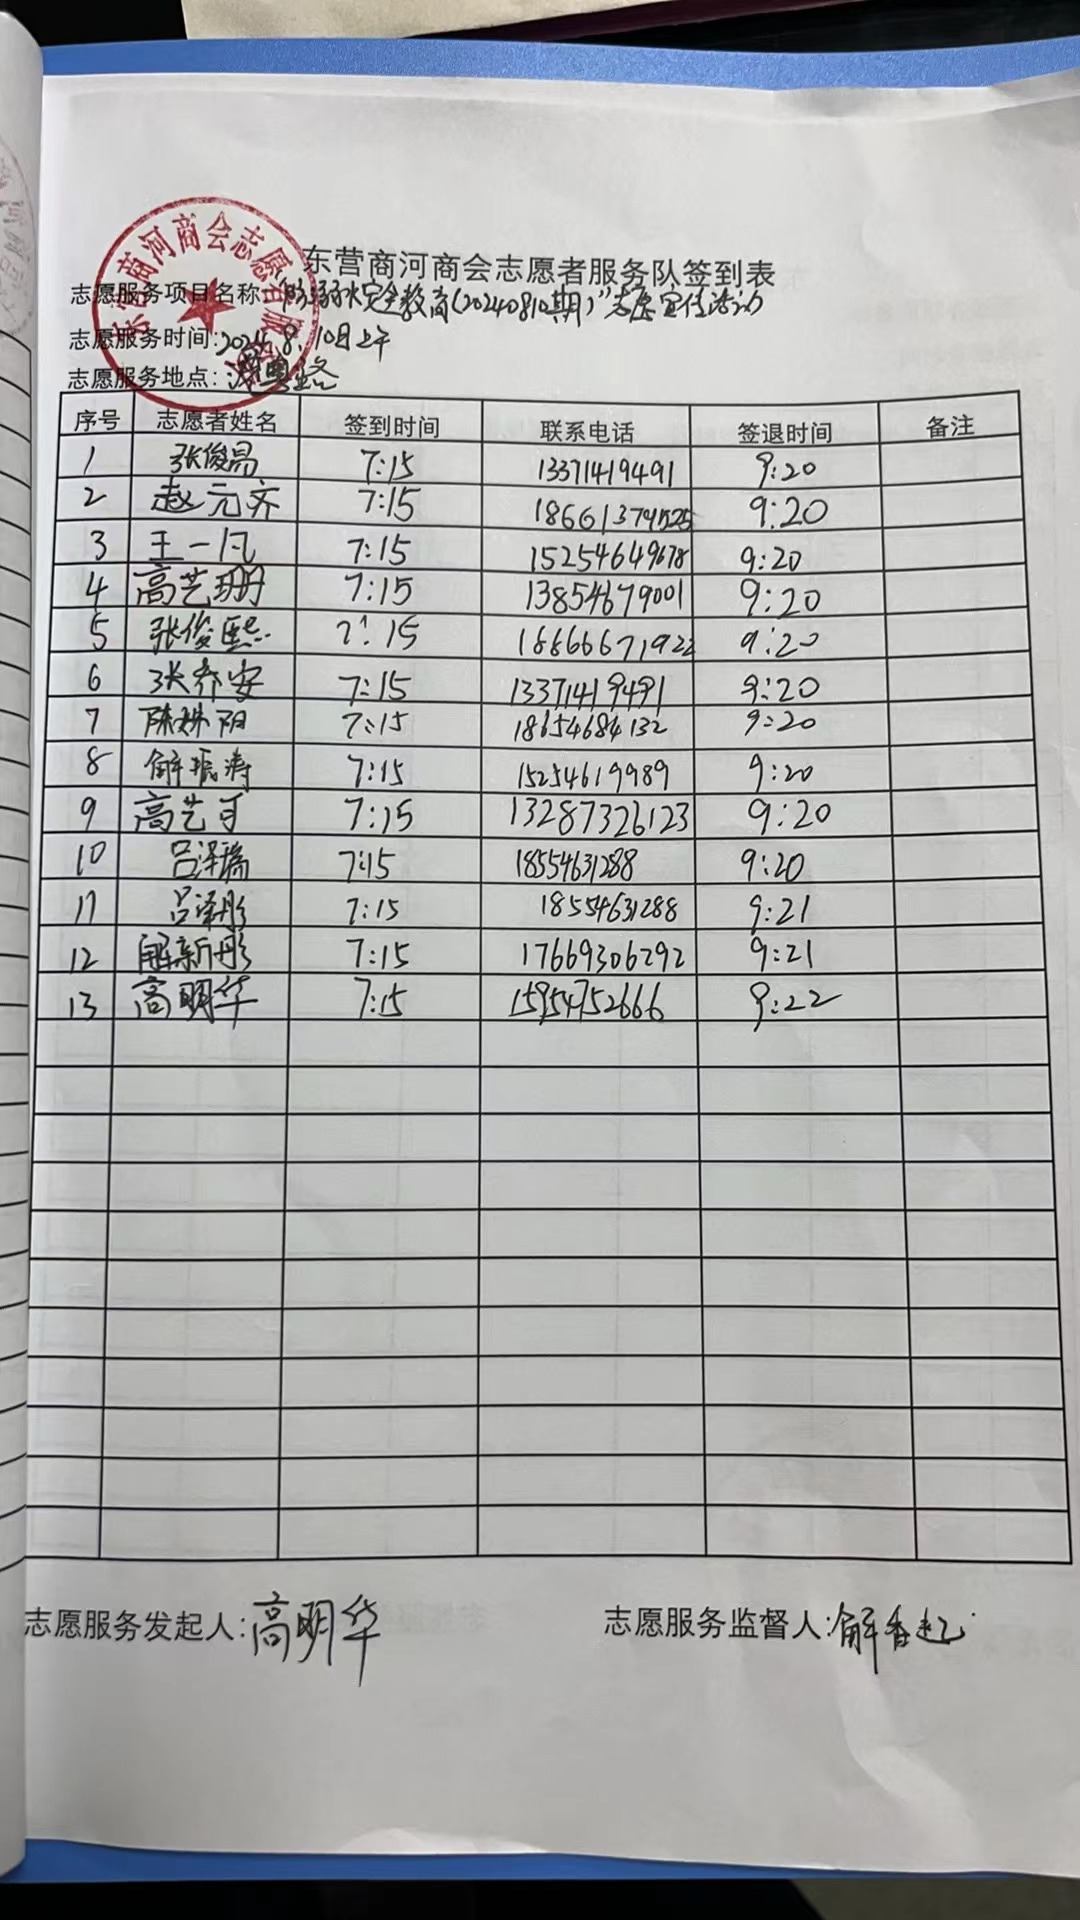 东营商河商会志愿者服务队
东营商河商会志愿者服务队签到表
志愿服务项目名称:"防溺水安全教育(20240810期)"志愿宣传活动
志愿服务时间:2024.8.10日上午
志愿服务地点:
序号 志愿者姓名 签到时间 联系电话 签退时间 备注
1 张俊昌 7:15 13371419491 9:20
2 赵元齐 7:15 9:20
3 王一凡 7:15 15254649678 9:20
4 高艺珊 7:15 13854679001 9:20
5 张俊熙 7:15 18666671922 9:20
6 张乔安 7:15 13371419491 9:20
7 陈姝阳 7:15 18654684132 9:20
8 解振涛 7:15 15254619989 9:20
9 高艺可 7:15 13287326123 9:20
10 吕泽瑞 7:15 18554631288 9:20
11 吕泽彤 7:15 18554631288 9:21
12 解新彤 7:15 17669306292 9:21
13 高明华 7:15 15954752666 9:22
志愿服务发起人:高明华
志愿服务监督人:解香起